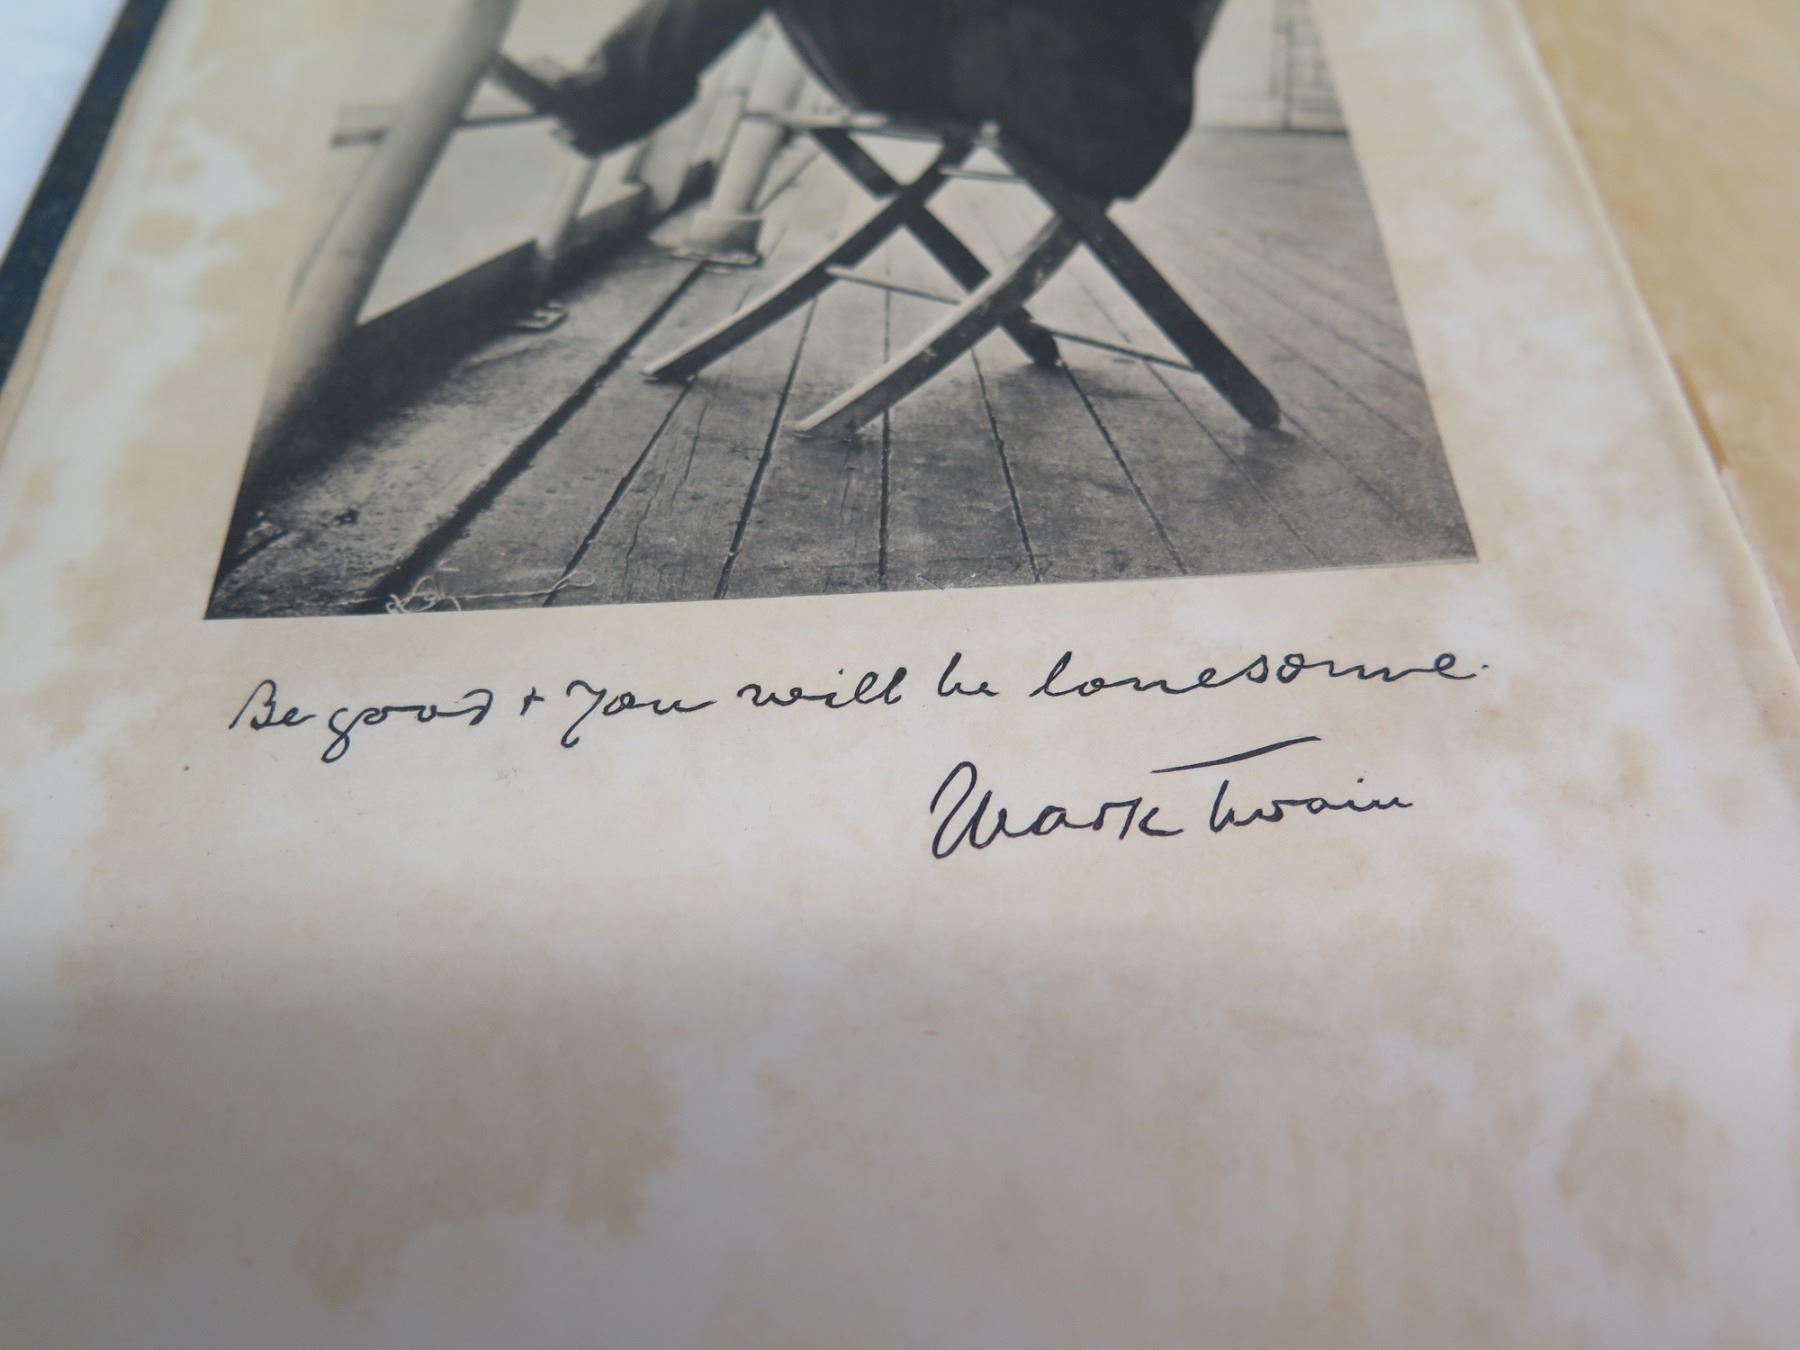 Be good + you will be lonesome.
Mark Twain